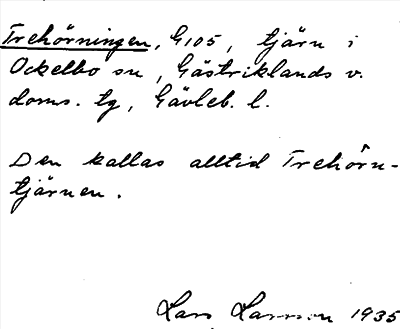 Trehörningen, G105, tjärn i
Ockelbo sn, Gästriklands v.
doms. tg, Gävleb. l.
Den kallas alltid Trehörn-
tjärnen.
Lars Larsson 1935